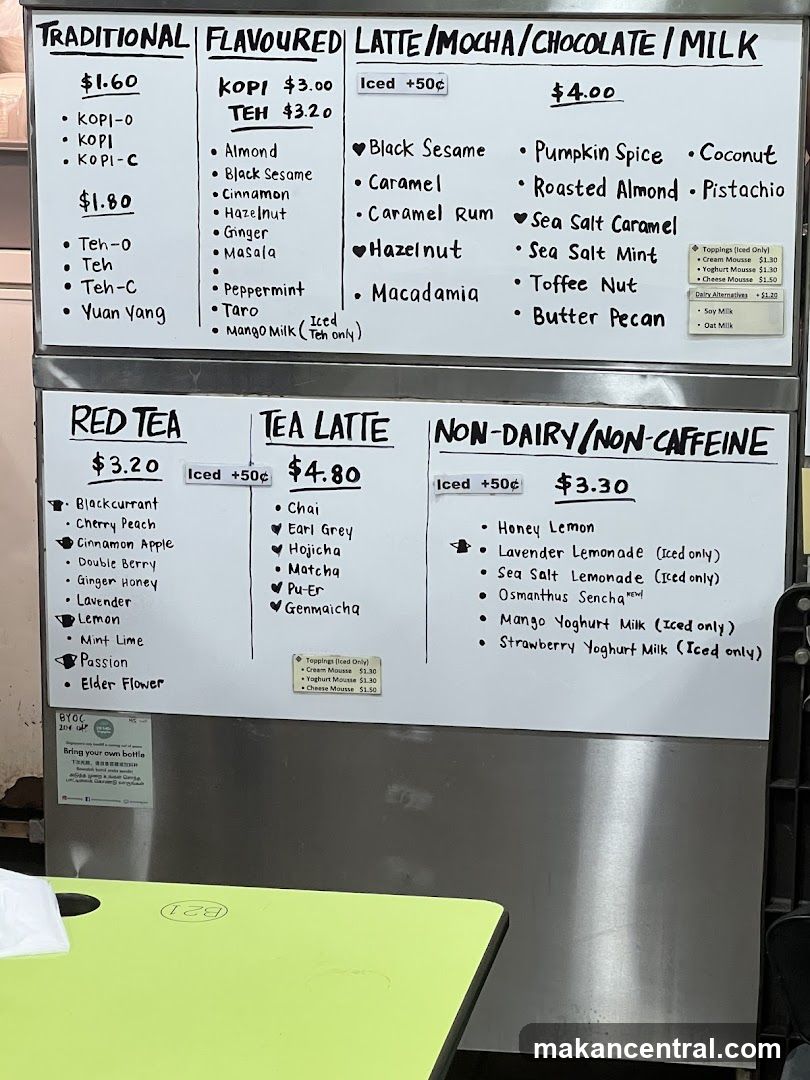 TRADITIONAL
$1.60
• KOPI-O
• KOPI
• KOPI-C
$1.80
• Teh-O
• Teh
• Teh-C
• Yuan Yang
FLAVOURED
KOPI $3.00
TEH $3.20
• Almond
• Black Sesame
• Cinnamon
• Hazelnut
• Ginger
• Masala
•
• Peppermint
• Taro
• Mango Milk (Iced Teh only)
LATTE/MOCHA/CHOCOLATE/MILK
Iced +50¢
$4.00
♥ Black Sesame
• Caramel
• Caramel Rum
♥ Hazelnut
• Macadamia
• Pumpkin Spice
• Roasted Almond
♥ Sea Salt Caramel
• Sea Salt Mint
• Toffee Nut
• Butter Pecan
• Coconut
• Pistachio
❖ Toppings (Iced Only)
• Cream Mousse $1.30
• Yoghurt Mousse $1.30
• Cheese Mousse $1.50
Dairy Alternatives +$1.20
• Soy Milk
• Oat Milk
RED TEA
$3.20
Iced +50¢
• Blackcurrant
• Cherry Peach
• Cinnamon Apple
• Double Berry
• Ginger Honey
• Lavender
• Lemon
• Mint Lime
• Passion
• Elder Flower
TEA LATTE
$4.80
• Chai
♥ Earl Grey
♥ Hojicha
• Matcha
♥ Pu-Er
♥ Genmaicha
❖ Toppings (Iced Only)
• Cream Mousse $1.30
• Yoghurt Mousse $1.30
• Cheese Mousse $1.50
NON-DAIRY/NON-CAFFEINE
Iced +50¢
$3.30
• Honey Lemon
• Lavender Lemonade (Iced only)
• Sea Salt Lemonade (Iced only)
• Osmanthus Sencha NEW!
• Mango Yoghurt Milk (Iced only)
• Strawberry Yoghurt Milk (Iced only)
BYOC
20¢ off
Bring your own bottle
B21
makancentral.com